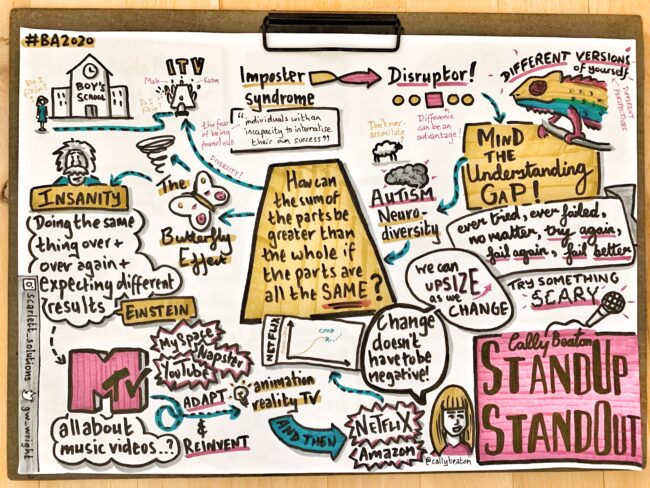 #BA2020
Do I
fit in?
BOY'S
SCHOOL
ITV
Male
Eaton
Do I
fit in?
the fear
of being
found out
DIVERSITY?
Imposter
syndrome
Disruptor!
"individuals with an
incapacity to internalise
their own success"
Difference
can be an
advantage!
Don't over-
assimilate
AUTISM
Neuro-
diversity
DIFFERENT VERSIONS
of yourself
DIFFERENT
PERSPECTIVES
MIND
THE
Understanding
GAP!
ever tried, ever failed,
no matter, try again,
fail again, fail better
TRY SOMETHING
SCARY
INSANITY
Doing the same
thing over +
over again +
expecting different
results
EINSTEIN
The
Butterfly
Effect
How can
the sum of
the parts be
greater than
the whole if
the parts are
all the SAME?
we can
UPSIZE
as we
CHANGE
Change
doesn't
have to be
negative!
NETFLIX
COVID
MTV
all about
music videos..?
MySpace
Napster
YouTube
ADAPT
&
REINVENT
animation
reality TV
AND THEN
NETFLIX
Amazon
@callybeaton
Cally Beaton
STANDUP
STANDOUT
scarlett_solutions
gw_wright